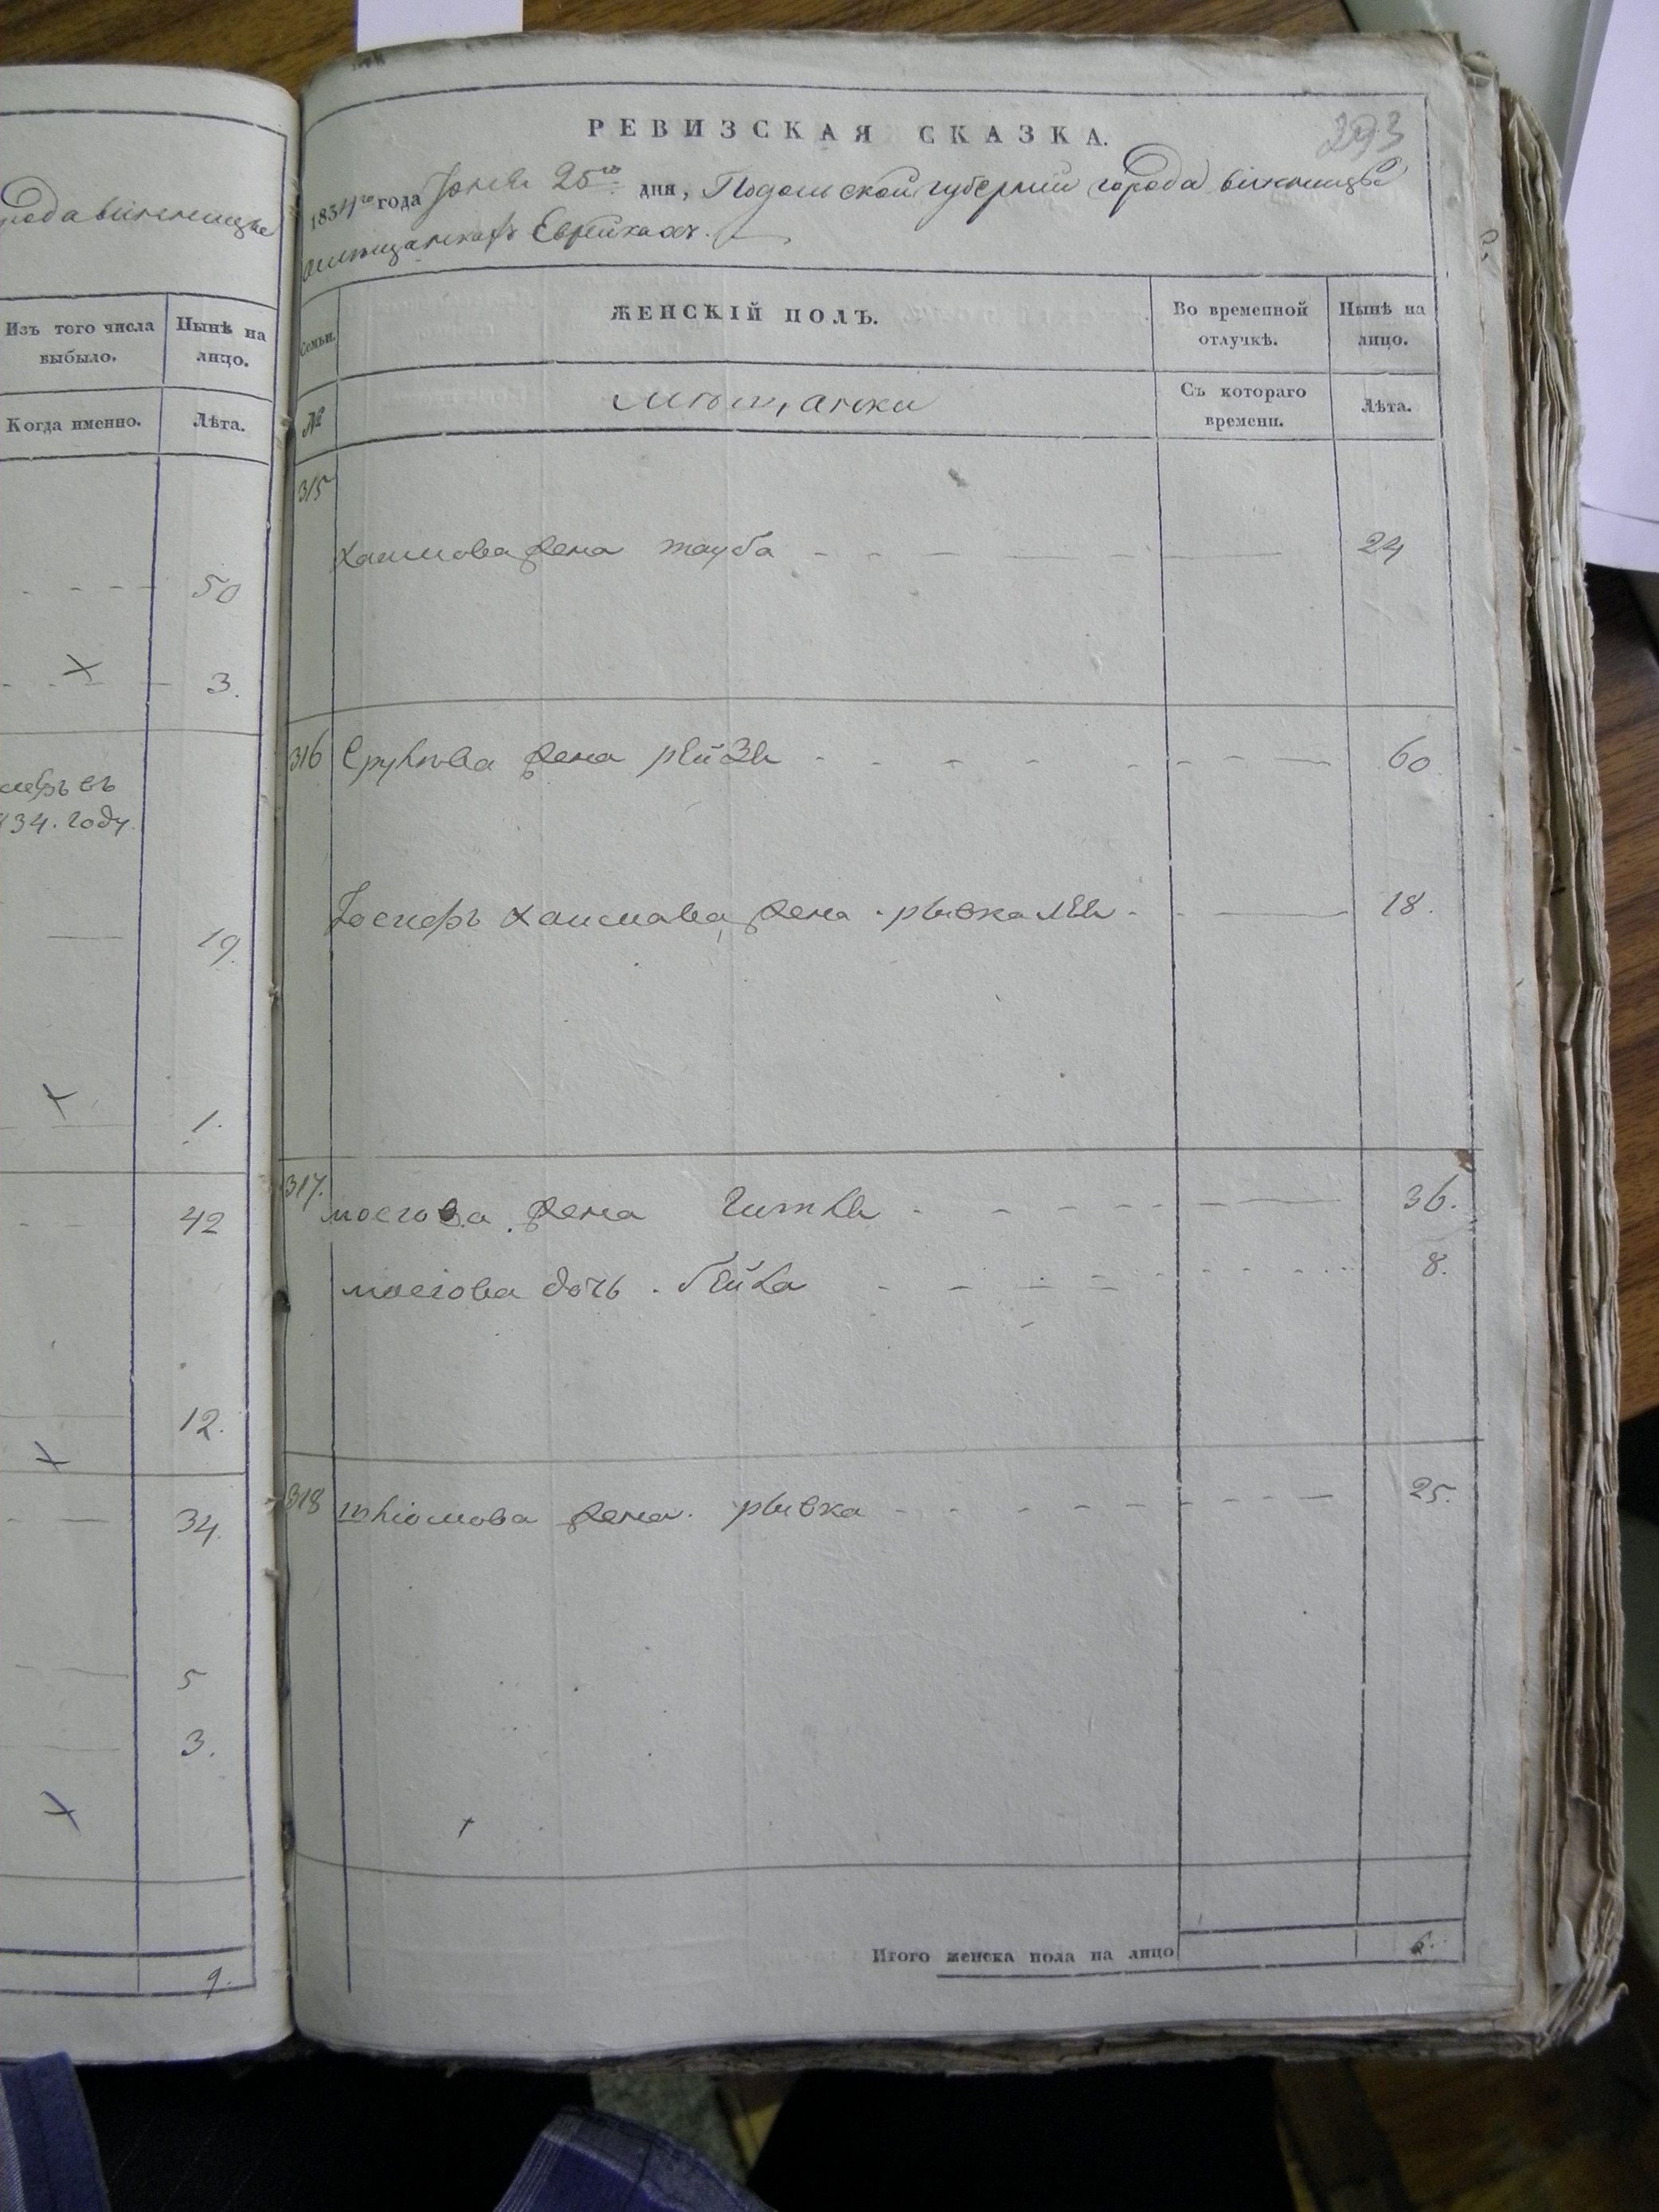 рода винницы
Изъ того числа выбыло.
Нынѣ на лицо.
Когда именно.
Лѣта.
50
3.
34. году
19.
1.
42
12.
34.
5
3.
9.
293
РЕВИЗСКАЯ СКАЗКА.
1834го года Іюня 25го дня, Подольской губерніи города винницы
мещанкахъ Еврейкахъ.
Семьи.
ЖЕНСКІЙ ПОЛЪ.
Во временной отлучкѣ.
Нынѣ на лицо.
№
мещанки
Съ котораго времени.
Лѣта.
315
Хаимова жена тауба 24
316 Срулова жена рейзя 60
Іосифъ Хаимова жена рывка лея 18.
317. мосгова жена Гитля 36.
мосгова дочь бейла 8.
318 шліомова жена рывка 25.
Итого женска пола на лицо 6.